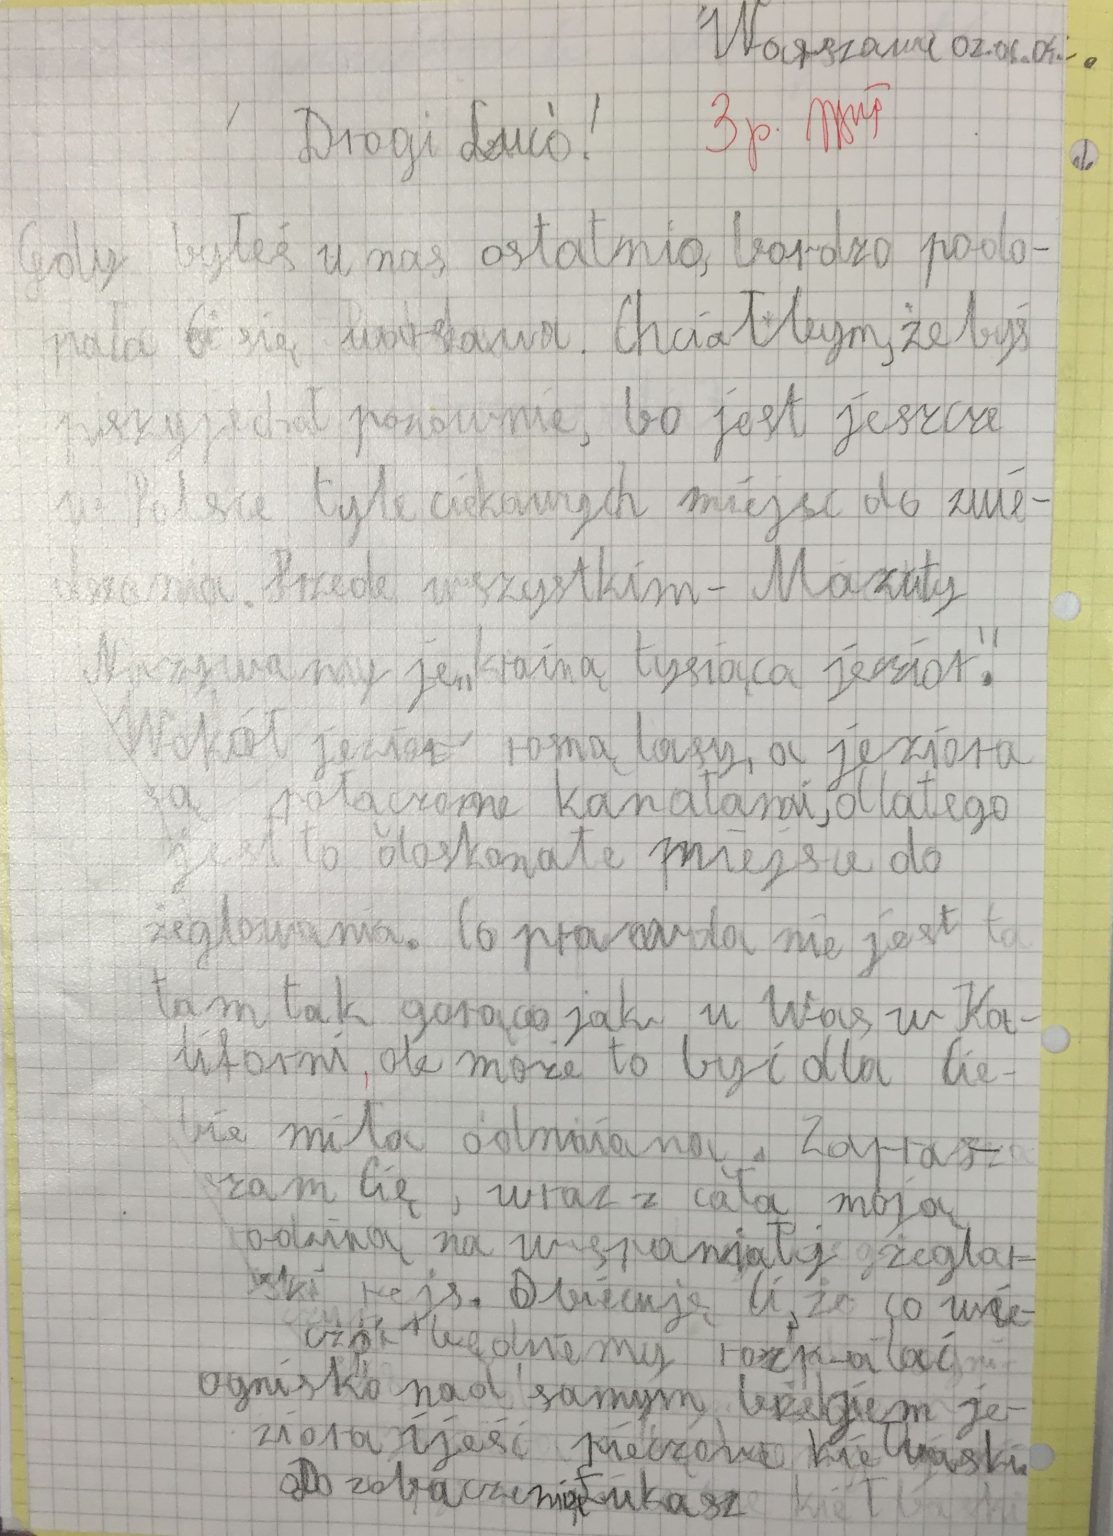 Warszawa 02.01.04.
Drogi Lucio! 3p.
Gdy byłeś u nas ostatnio, bardzo podo-
pała Ci się Warszawa. Chciałbym, żebyś
przyjechał ponownie, bo jest jeszcze
w Polsce tyle ciekawych miejsc do zwie-
dzania. Przede wszystkim - Mazury
Nazywamy je „krainą tysiąca jezior".
Wokół jezior rosną lasy, a jeziora
są połączone kanałami, dlatego
jest to doskonałe miejsce do
żeglowania. Co prawda nie jest ta
tam tak gorąco jak u Was w Ka-
liforni, ale może to być dla Cie-
bie miła odmiana. Zaprasza
szam Cię, wraz z cała moją
rodziną na wspaniały żeglar-
ski rejs. Obiecuję Ci, że co wie-
czór będziemy rozpalać
ognisko nad samym brzegiem je-
ziora i jeść pieczone kiełbaski.
Do zobaczenia Łukasz